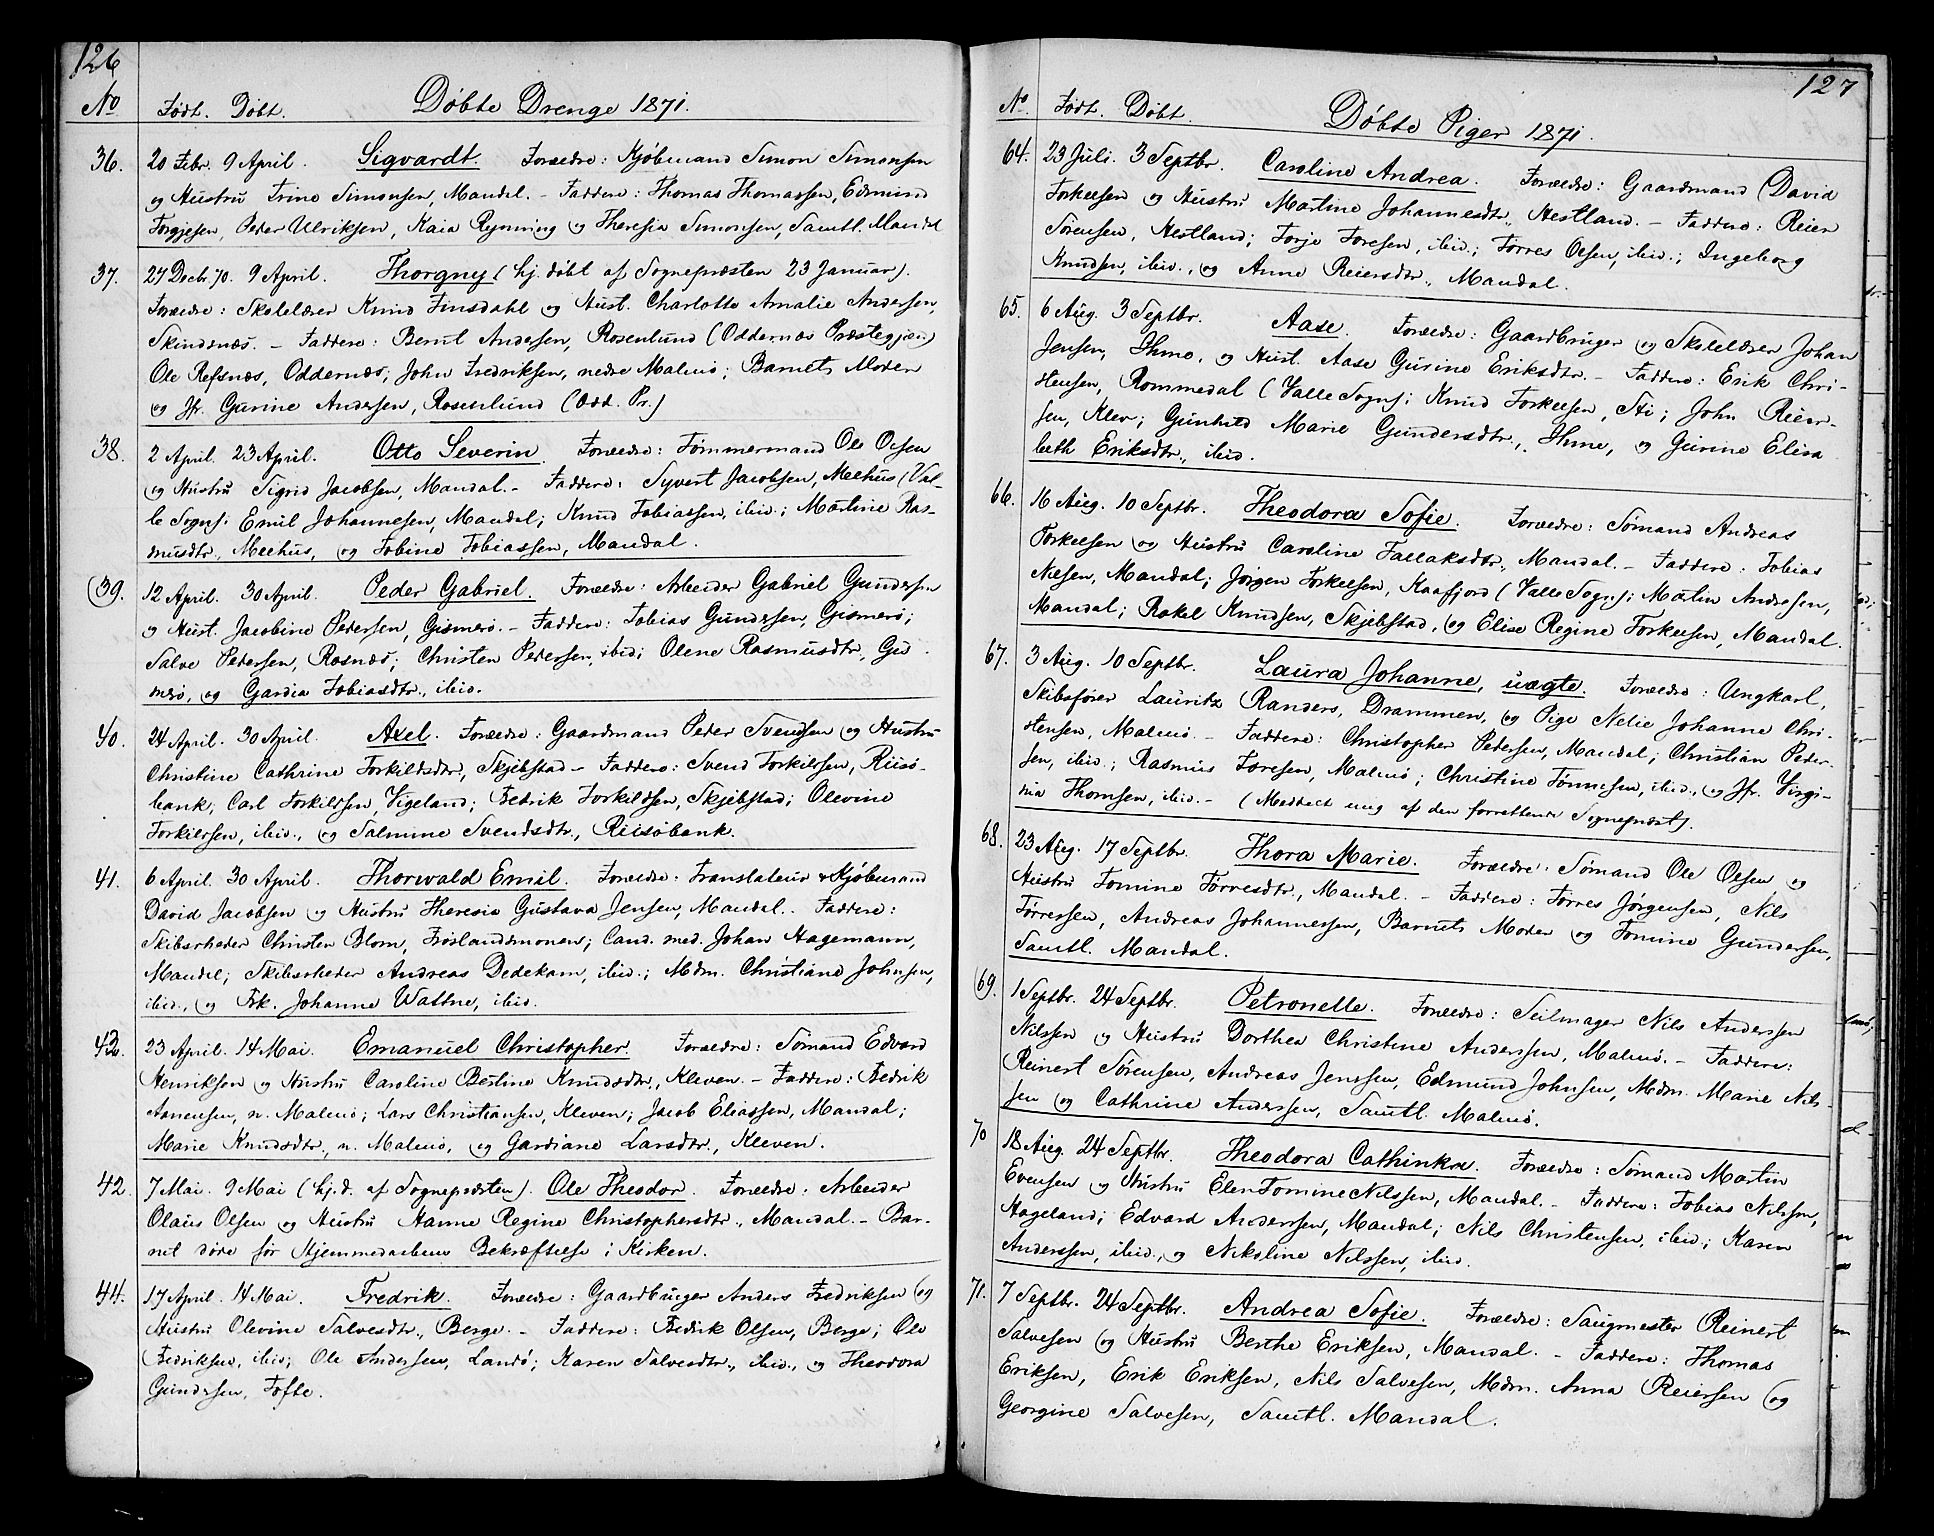 126
No Født. Døbt. Døbte Drenge 1871.
36. 20 Febr. 9 April. Sigvardt. Forældre: Kjøbmand Simon Simonsen
og Hustru Trine Simonsen, Mandal. – Faddere: Thomas Thomassen, Edmund
Torgjesen, Peder Ulriksen, Kaia Rynning og Theresia Simonsen, Samtl. Mandal
37. 27 Decbr 70. 9 April. Thorgny (hj. døbt af Sognepræsten 23 Januar).
Forældre: Skolelærer Knud Finsdahl og Hust. Charlotte Amalie Andersen,
Skindsnæs. – Faddere: Bernt Andersen, Rosenlund (Oddernæs Præstegjæld)
Ole Refsnæs, Oddernæs; John Fredriksen, nedre Malmø; Barnets Moder
og Jfr. Gurine Andersen, Rosenlund (Odd. Pr.)
38. 2 April. 23 April. Otto Severin. Forældre: Tømmermand Ole Olsen
og Hustru Sigrid Jacobsen, Mandal. – Faddere: Syvert Jacobsen, Meehus (Val-
le Sogn); Emil Johannesen, Mandal; Knud Tobiassen, ibid.; Martine Ras-
musdtr., Meehus, og Tobine Tobiassen, Mandal.
(39. 12 April. 30 April. Peder Gabriel. Forældre: Arbeider Gabriel Gundersen
og Hust. Jacobine Pedersen, Gismerø. – Faddere: Tobias Gundersen, Gismerø;
Salve Pedersen, Rosnæs; Christen Pedersen, ibid; Olene Rasmusdtr, Gis-
merø, og Gardia Tobiasdtr., ibid.
40. 24 April. 30 April. Axel. Forældre: Gaardmand Peder Svendsen og Hustru
Christine Cathrine Torkildsdtr., Skjebstad – Faddere: Svend Torkilsen, Riisø-
bank; Carl Torkildsen, Vigeland; Fredrik Torkildsen, Skjebstad; Olevine
Torkilssen, ibid., og Salmine Svendsdtr., Riisøbank.
41. 6 April. 30 April. Thorwald Emil. Forældre: Translateur & Kjøbmand
David Jacobsen og Hustru Theresia Gustava Jensen, Mandal. Faddere:
Skibsrheder Christen Blom, Frøslandsmonen; Cand. med. Johan Hagemann,
Mandal; Skibsrheder Andreas Dedekam, ibid.; Mdm. Christiane Johnsen,
ibid., og Frk. Johanne Wattne, ibid.
43. 23 April. 14 Mai. Emanuel Christopher. Forældre: Sømand Edvard
Henriksen og Hustru Caroline Bertine Knudsdtr., Kleven. – Faddere: Fredrik
Aanensen, n. Malmø; Lars Christiansen, Kleven; Jacob Eliassen, Mandal;
Marie Knudsdtr., n. Malmø, og Gardiane Larsdtr., Kleven.
42. 7 Mai. 9 Mai (hj. d. af Sognepræsten). Ole Theodor. Forældre: Arbeider
Olaus Olsen og Hustru Hanne Regine Christophersdtr., Mandal. – Bar-
net døde før Hjemmedaabens Bekræftelse i Kirken.
44. 17 April. 14 Mai. Fredrik. Forældre: Gaardbruger Anders Fredriksen og
Hustru Olevine Salvesdtr., Berge. – Faddere: Fredrik Olsen, Berge; Ole
Fredriksen, ibid; Ole Andersen, Landø; Karen Salvesdtr., ibid., og Theodora
Gundersen, Tofte.
127
No. Født. Døbt. Døbte Piger 1871.
64. 23 Juli. 3 Septbr. Caroline Andrea. Forældre: Gaardmand David
Torkelsen og Hustru Martine Johannesdtr., Hestland. – Faddere: Reier
Sørensen, Hestland; Terje Toresen, ibid.; Tørres Olsen, ibid.; Ingeborg
Knudsen, ibid., og Anne Reiersdtr., Mandal.
65. 6 Aug. 3 Septbr. Aase. Forældre: Gaardbruger og Skolelærer Johan
Jensen, Ihme, og Hust. Aase Gurine Eriksdtr. – Faddere: Erik Chri-
stensen, Rommedal (Valle Sogn); Knud Torkelsen, Sti; John Reier-
sen, Klev; Gunhild Marie Gundersdtr., Ihme, og Gurine Elisa
beth Eriksdtr., ibid.
66. 16 Aug. 10 Septbr. Theodora Sofie. Forældre: Sømand Andreas
Torkelsen og Hustru Caroline Tallaksdtr., Mandal. – Faddere: Tobias
Nilsen, Mandal; Jørgen Torkelsen, Kaafjord (Valle Sogn); Martin Andresen,
Mandal; Rakel Knudsen, Skjebstad, og Elise Regine Torkelsen, Mandal.
67. 3 Aug. 10 Septbr. Laura Johanne, uægte. Forældre: Ungkarl,
Skibsfører Lauritz Randers, Drammen, og Pige Nelie Johanne Chri-
stensen, Malmø. – Faddere: Christopher Pedersen, Mandal; Christian Peder-
sen, ibid.; Rasmus Toresen, Malmø; Christine Tønnesen, ibid., og Jfr. Virgi-
nia Thomsen, ibid. – (Meddelt mig af den forrettende Sognepræst).
68. 23 Aug. 17 Septbr. Thora Marie. Forældre: Sømand Ole Olsen og
Hustru Tomine Tørresdtr., Mandal. – Faddere: Tørres Jørgensen, Nils
Tørressen, Andreas Johannessen, Barnets Moder og Tomine Gundersen,
Samtl. Mandal.
(69. 1 Septbr. 24 Septbr. Petronelle. Forældre: Seilmager Nils Anderssen
Nilssen og Hustru Dorthea Christine Anderssen, Malmø. – Faddere:
Reinert Sørensen, Andreas Jenssen, Edmund Johnsen, Mdm. Marie Nils-
sen og Cathrine Anderssen, Samtl. Malmø.
70 18 Aug. 24 Septbr. Theodora Cathinka. Forældre: Sømand Martin
Evensen og Hustru Elen Tomine Nilssen, Mandal. – Faddere: Tobias Nilssen,
Hageland; Edvard Anderssen, Mandal; Nils Christensen, ibid.; Karen
Anderssen, ibid., og Nikoline Nilssen, ibid.
71. 7 Septbr. 24 Septbr. Andrea Sofie. Forældre: Saugmester Reinert
Salvesen og Hustru Berthe Eriksen, Mandal. – Faddere: Thomas
Eriksen, Erik Eriksen, Nils Salvesen, Mdm. Anna Reiersen og
Georgine Salvesen, Samtl. Mandal.